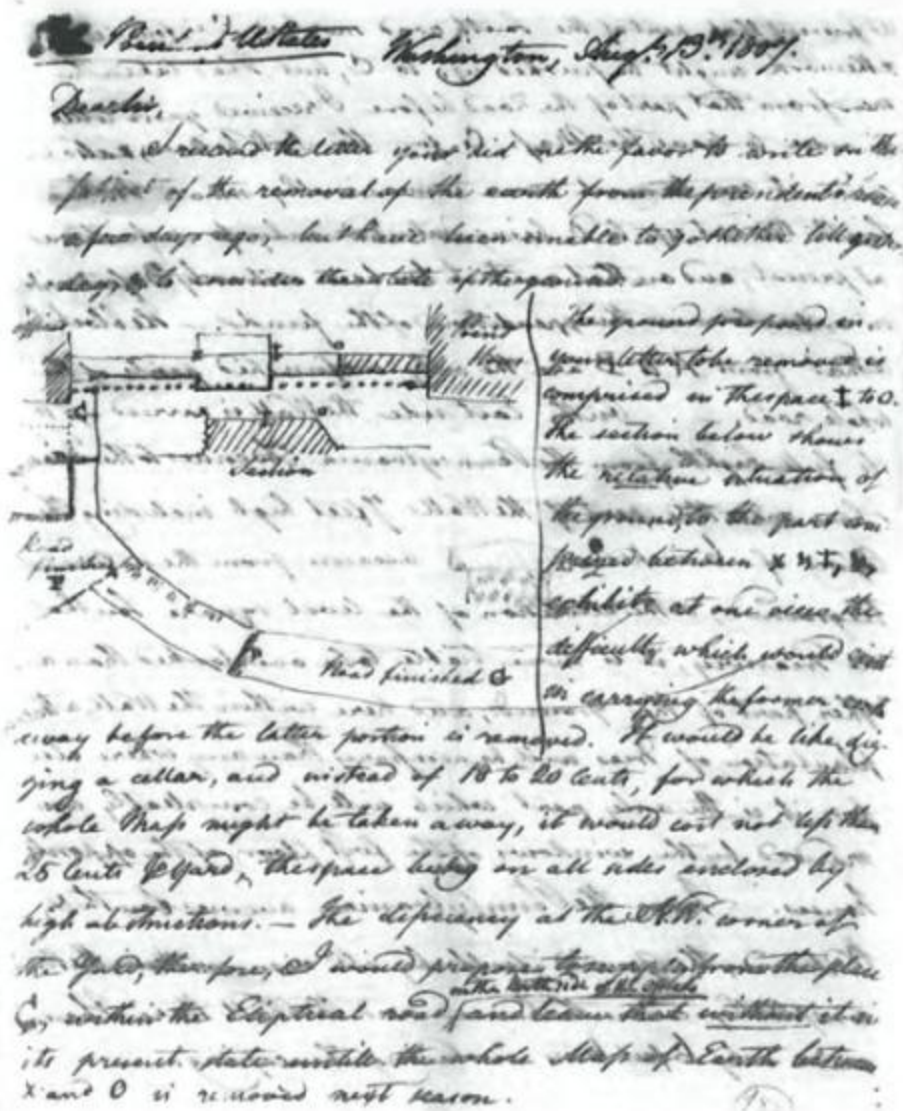 Presid. U States Washington, Augt. 13th. 1807.
Dear Sir,
I received the letter you did me the favor to write on the
subject of the removal of the earth from the president's house
a few days ago, but have been unable to go thither till yester-
day, to consider the state of the ground.
Presid
House
Section
Road
finished
Road finished
The ground proposed in
your letter to be removed is
comprised in the space ‡ to O.
The section below shows
the relative situation of
the ground, to the part com
prized between x & ‡, &
exhibits at one view the
difficulty which would exist
in carrying the former
away before the latter portion is removed. It would be like dig-
ging a cellar, and instead of 18 to 20 Cents, for which the
whole Mass might be taken away, it would cost not less than
25 Cents ⅌ Yard, the space being on all sides enclosed by
high obstructions. — The deficiency at the N.W. corner of
the Yard, therefore, I would propose to supply from the place
on the North side of the
G, within the Eliptical road, and leave that without it in
its present state untill the whole Mass of Earth between
x and O is removed next season.